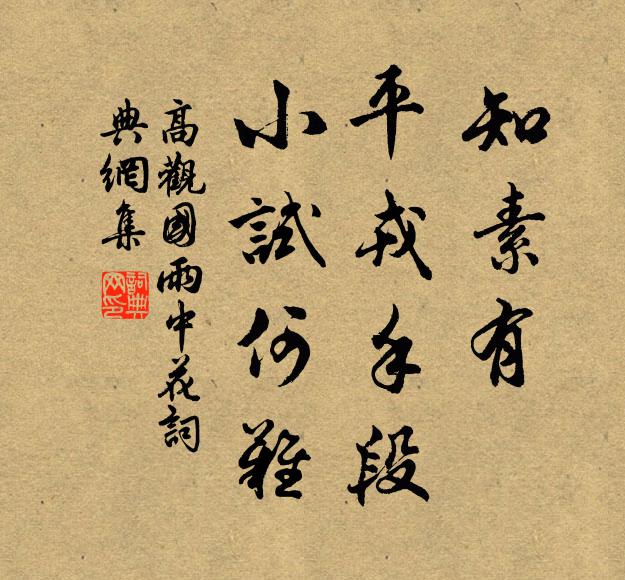 知素有
平戎手段
小試何難
高觀國雨中花詞
典網集
詞典网印